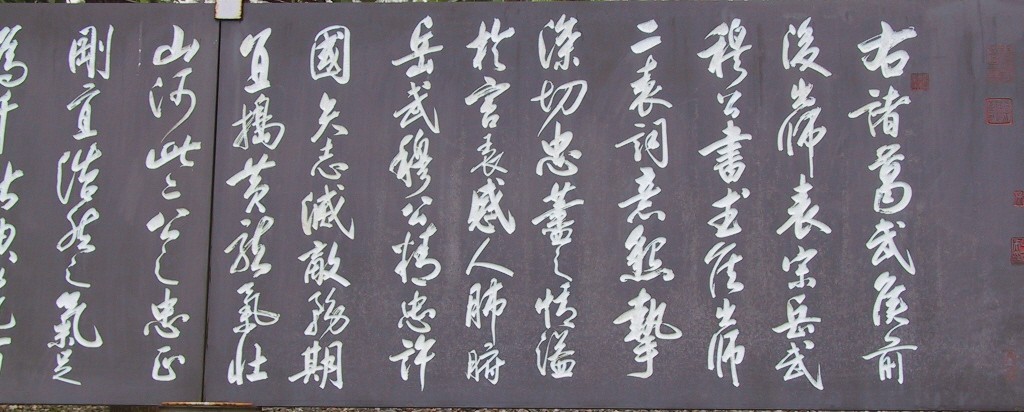 右諸葛武侯前
後出師表宋岳武
穆公書武侯出師
二表詞意懇摯
深切忠藎之情溢
於言表感人肺腑
岳武穆公精忠許
國矢志滅敵務期
直搗黃龍氣壯
山河此二公之忠正
剛直浩然之氣足